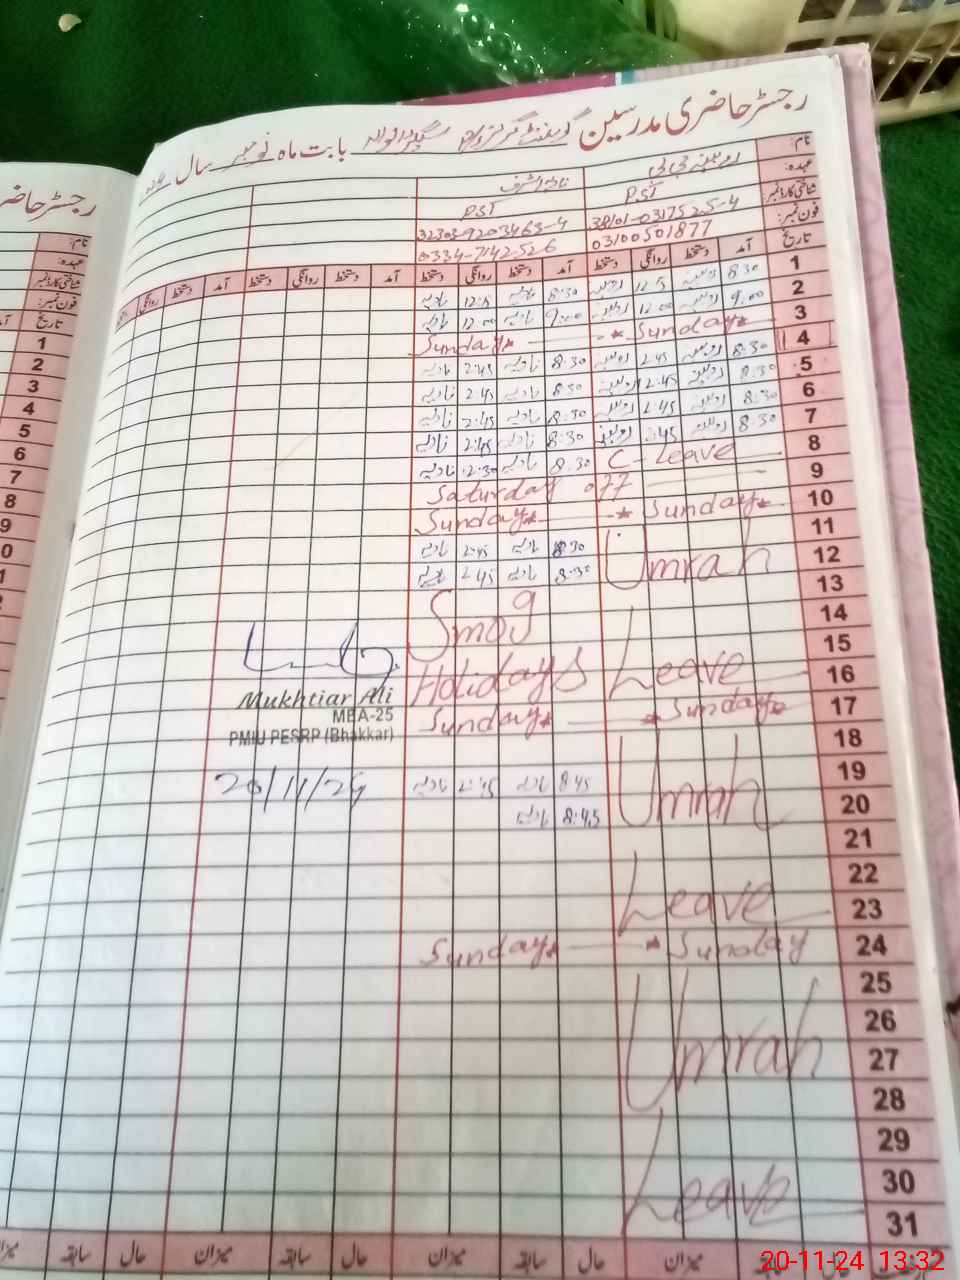 رجسٹر حاضری مدرسین گورنمنٹ گرلز بابت ماہ نومبر سال
نام:
عہدہ: PST PST
شناختی کارڈ نمبر: 38101-0317525-4 32303-9203463-4
فون نمبر: 03100501877 0334-7142526
تاریخ آمد دستخط روانگی دستخط آمد دستخط روانگی دستخط آمد دستخط روانگی دستخط آمد دستخط روانگی
1 8:30 12:15 8:30 نادیہ 12:15 نادیہ
2 9:00 12:00 9:00 نادیہ 12:00 نادیہ
3 Sunday Sunday
4 8:30 2:45 8:30 نادیہ 2:45 نادیہ
5 8:30 2:45 8:30 نادیہ 2:45 نادیہ
6 8:30 2:45 8:30 نادیہ 2:45 نادیہ
7 8:30 2:45 8:30 نادیہ 2:45 نادیہ
8 C-Leave 8:30 نادیہ 2:30 نادیہ
9 Saturday off
10 Sunday Sunday
11 8:30 نادیہ 2:45 نادیہ
12 Umrah 8:30 نادیہ 2:45 نادیہ
13
14 Smog
15
16 Leave Holidays
17 Sunday Sunday
18
19 8:45 نادیہ 2:45 نادیہ
20 Umrah 8:45 نادیہ
21
22
23 Leave
24 Sunday Sunday
25
26
27 Umrah
28
29
30
31 Leave
میزان حال سابقہ میزان حال سابقہ میزان حال سابقہ
Mukhtiar Ali
MEA-25
PMIU PESRP (Bhakkar)
20/11/24
رجسٹر حاضر
نام:
عہدہ:
شناختی کارڈ نمبر:
فون نمبر:
تاریخ
1
2
3
4
5
6
7
8
20-11-24 13:32